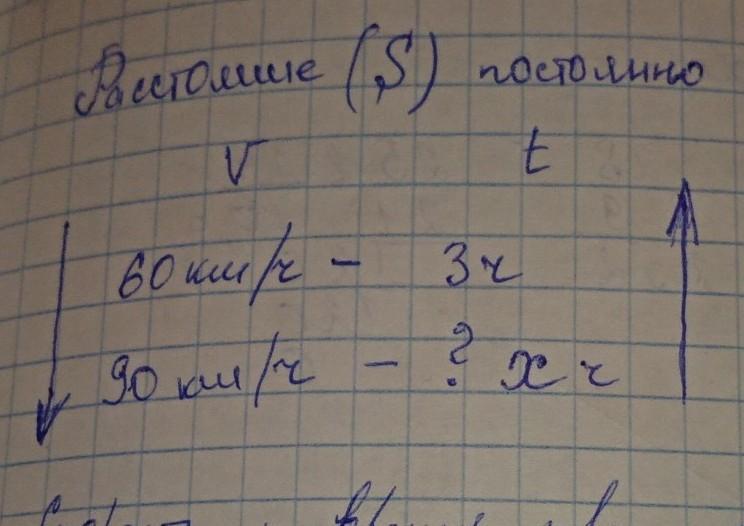 Расстояние (S) постоянно
V t
60 км/ч - 3 ч
90 км/ч - ? х ч